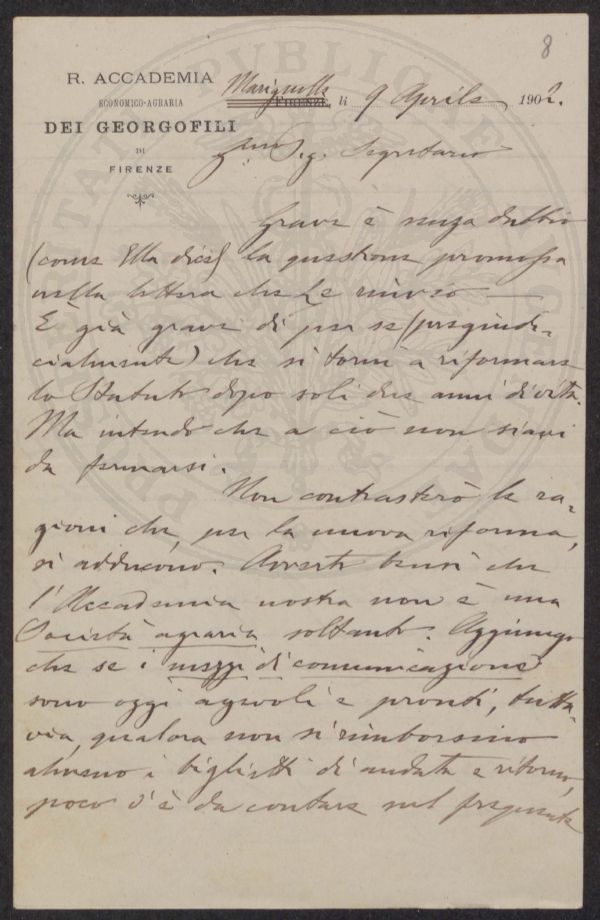 8
R. ACCADEMIA
ECONOMICO-AGRARIA
DEI GEORGOFILI
DI
FIRENZE
Marignolle FIRENZE, li 9 Aprile 1902.
Sig. Segretario
Grave è senza dubbio
(come Ella dice) la questione promossa
nella lettera che Le rinvio —
È già grave di per se (pregiudi-
cialmente) che si torni a riformare
lo Statuto dopo soli due anni di vita.
Ma intendo che a ciò non siavi
da fermarsi.
Non contrasterò le ra-
gioni che, per la nuova riforma,
si adducono. Avverto bensì che
l'Accademia nostra non è una
Società agraria soltanto. Aggiungo
che se i mezzi di comunicazione
sono oggi agevoli e pronti, tutta-
via, qualora non si rimborsino
almeno i biglietti di andata e ritorno,
poco v'è da contare sul frequente